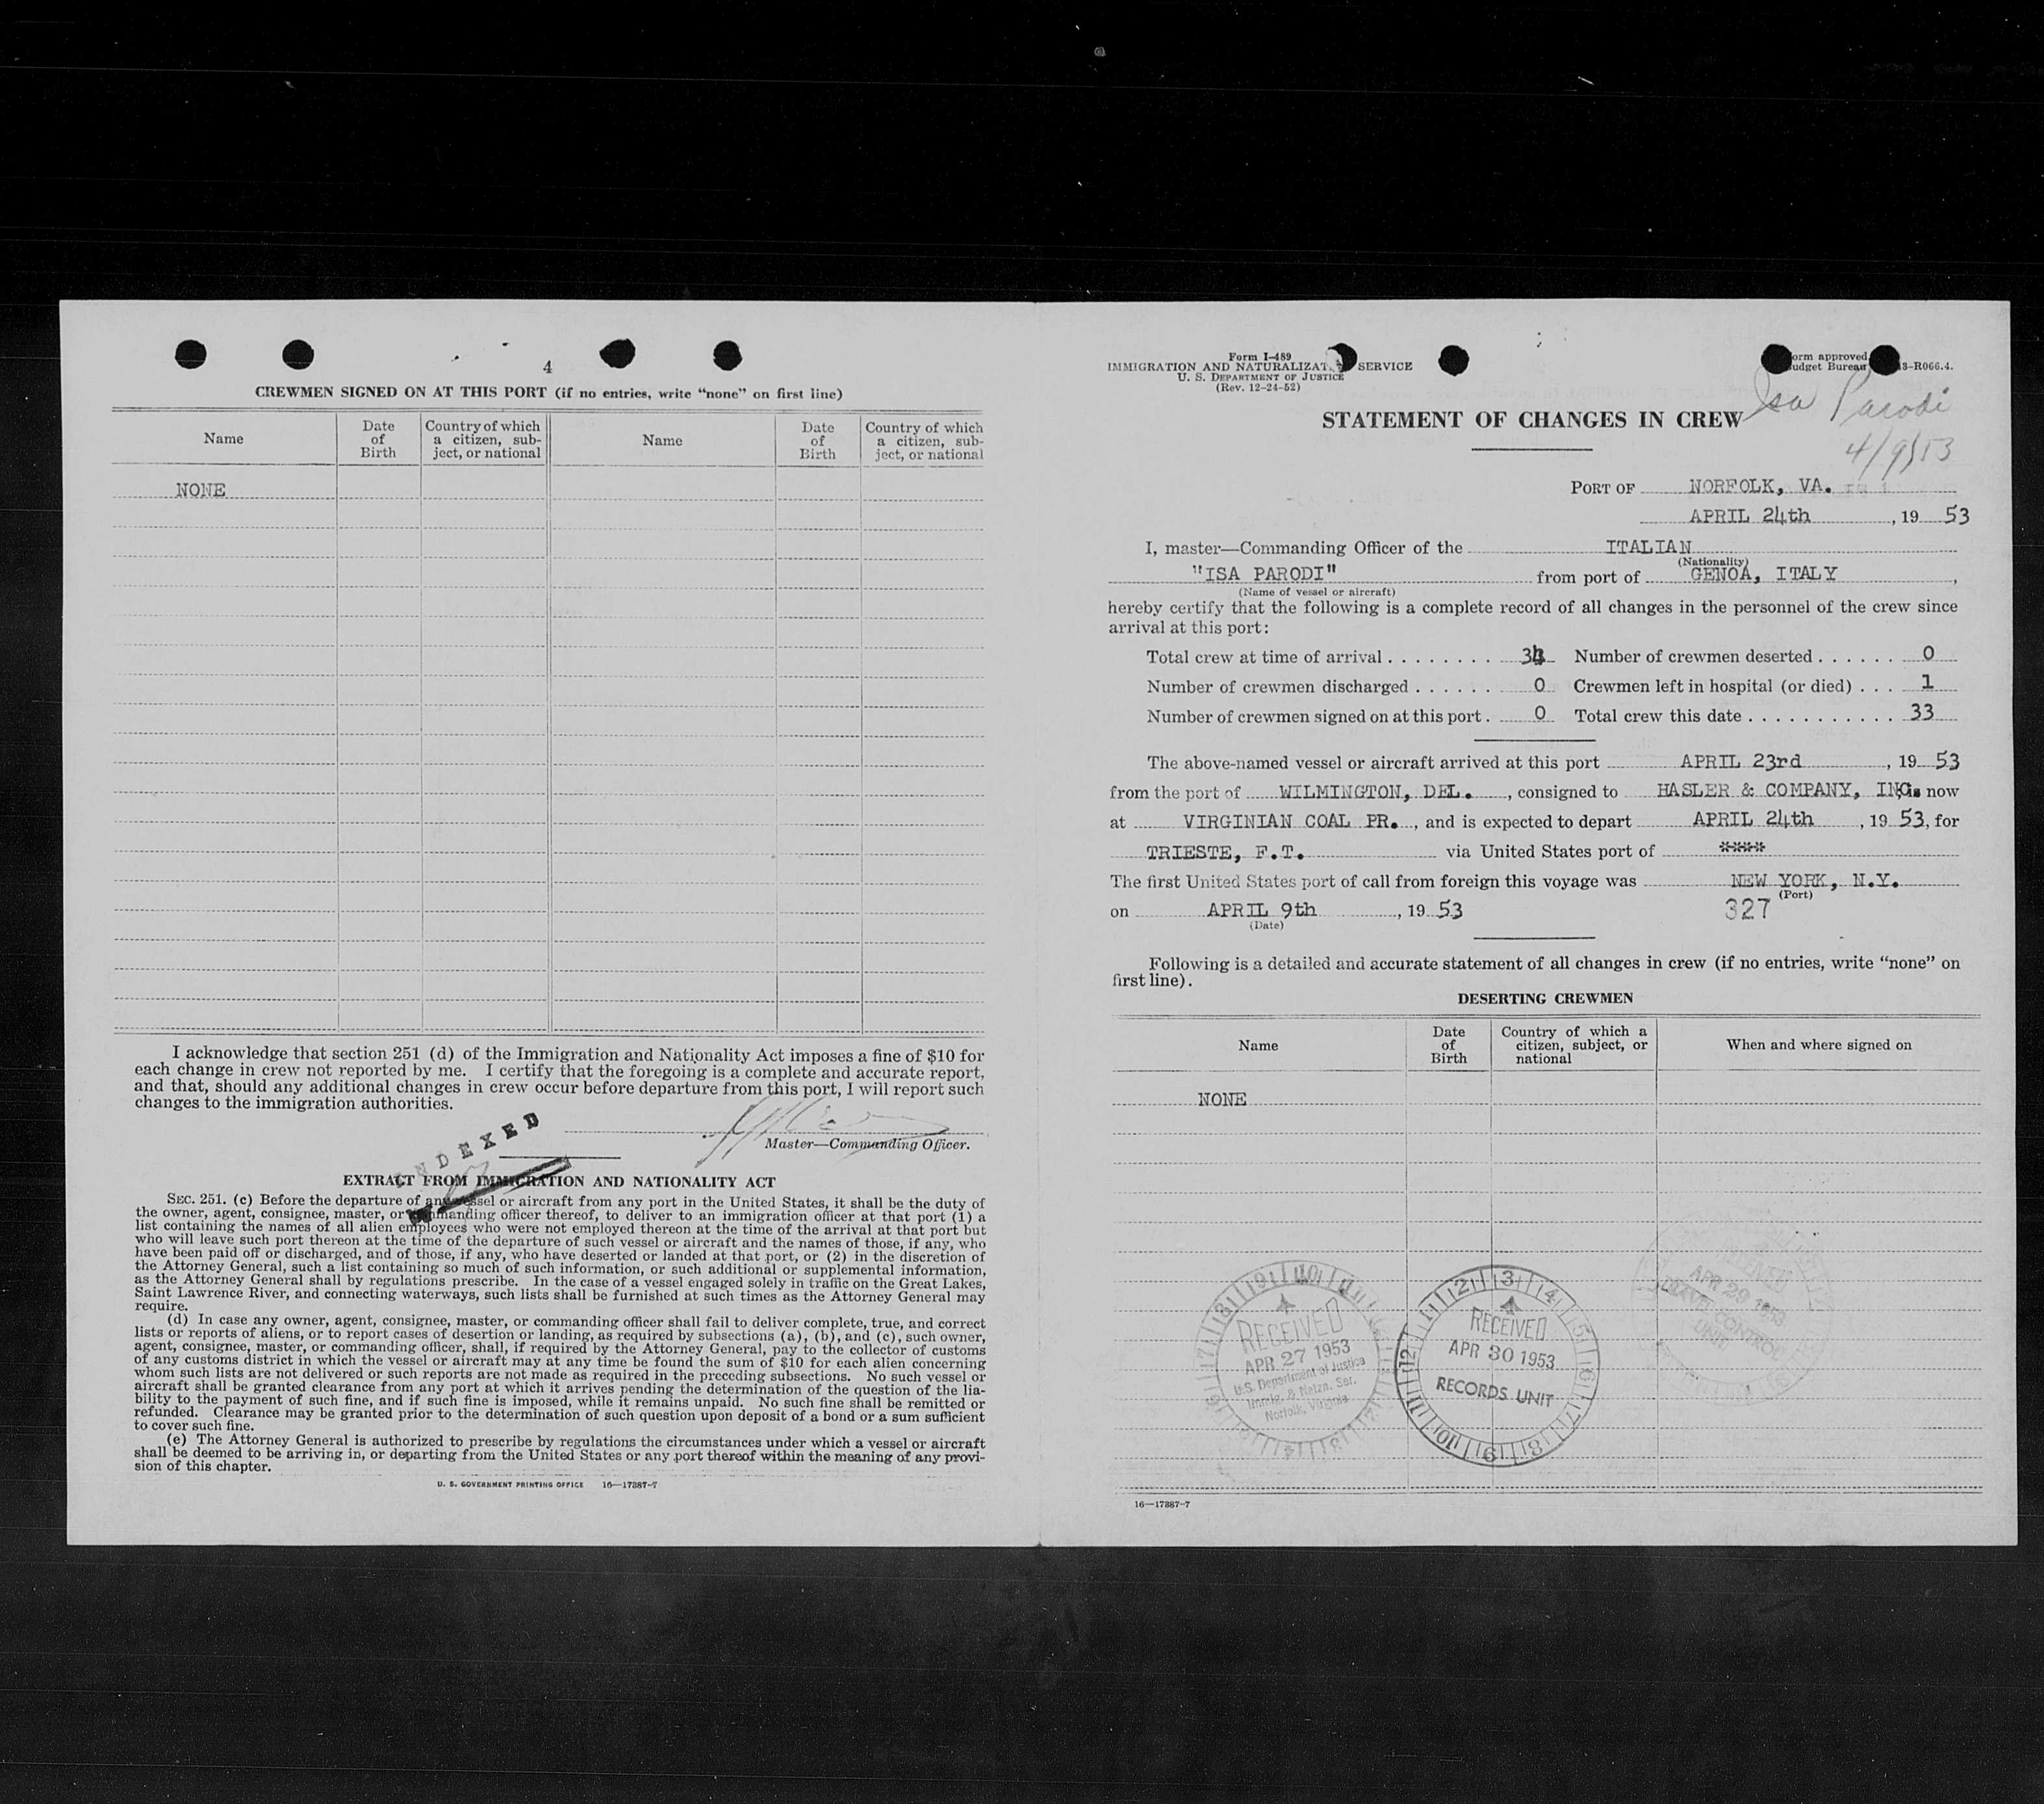 4
CREWMEN SIGNED ON AT THIS PORT (if no entries, write “none” on first line)
Name
Date of Birth
Country of which a citizen, sub-ject, or national
Name
Date of Birth
Country of which a citizen, sub-ject, or national
NONE
I acknowledge that section 251 (d) of the Immigration and Nationality Act imposes a fine of $10 for
each change in crew not reported by me. I certify that the foregoing is a complete and accurate report,
and that, should any additional changes in crew occur before departure from this port, I will report such
changes to the immigration authorities.
Master—Commanding Officer.
INDEXED
EXTRACT FROM IMMIGRATION AND NATIONALITY ACT
SEC. 251. (c) Before the departure of any vessel or aircraft from any port in the United States, it shall be the duty of
the owner, agent, consignee, master, or commanding officer thereof, to deliver to an immigration officer at that port (1) a
list containing the names of all alien employees who were not employed thereon at the time of the arrival at that port but
who will leave such port thereon at the time of the departure of such vessel or aircraft and the names of those, if any, who
have been paid off or discharged, and of those, if any, who have deserted or landed at that port, or (2) in the discretion of
the Attorney General, such a list containing so much of such information, or such additional or supplemental information,
as the Attorney General shall by regulations prescribe. In the case of a vessel engaged solely in traffic on the Great Lakes,
Saint Lawrence River, and connecting waterways, such lists shall be furnished at such times as the Attorney General may
require.
(d) In case any owner, agent, consignee, master, or commanding officer shall fail to deliver complete, true, and correct
lists or reports of aliens, or to report cases of desertion or landing, as required by subsections (a), (b), and (c), such owner,
agent, consignee, master, or commanding officer, shall, if required by the Attorney General, pay to the collector of customs
of any customs district in which the vessel or aircraft may at any time be found the sum of $10 for each alien concerning
whom such lists are not delivered or such reports are not made as required in the preceding subsections. No such vessel or
aircraft shall be granted clearance from any port at which it arrives pending the determination of the question of the lia-
bility to the payment of such fine, and if such fine is imposed, while it remains unpaid. No such fine shall be remitted or
refunded. Clearance may be granted prior to the determination of such question upon deposit of a bond or a sum sufficient
to cover such fine.
(e) The Attorney General is authorized to prescribe by regulations the circumstances under which a vessel or aircraft
shall be deemed to be arriving in, or departing from the United States or any port thereof within the meaning of any provi-
sion of this chapter.
U. S. GOVERNMENT PRINTING OFFICE 16—17387-7
Form I-489
IMMIGRATION AND NATURALIZAT SERVICE
U. S. DEPARTMENT OF JUSTICE
(Rev. 12-24-52)
orm approved.
udget Bureau 3-R066.4.
Isa Parodi
4/9/53
STATEMENT OF CHANGES IN CREW
PORT OF NORFOLK, VA.
APRIL 24th, 19 53
I, master—Commanding Officer of the ITALIAN
(Nationality)
"ISA PARODI" from port of GENOA, ITALY,
(Name of vessel or aircraft)
hereby certify that the following is a complete record of all changes in the personnel of the crew since
arrival at this port:
Total crew at time of arrival . . . . . . . . 34 Number of crewmen deserted . . . . . . 0
Number of crewmen discharged . . . . . . 0 Crewmen left in hospital (or died) . . . 1
Number of crewmen signed on at this port . 0 Total crew this date . . . . . . . . . . . 33
The above-named vessel or aircraft arrived at this port APRIL 23rd, 19 53
from the port of WILMINGTON, DEL., consigned to HASLER & COMPANY, INC. is now
at VIRGINIAN COAL PR., and is expected to depart APRIL 24th, 19 53, for
TRIESTE, F.T. via United States port of ****
The first United States port of call from foreign this voyage was NEW YORK, N.Y.
(Port)
on APRIL 9th, 19 53 327
(Date)
Following is a detailed and accurate statement of all changes in crew (if no entries, write “none” on
first line).
DESERTING CREWMEN
Name
Date of Birth
Country of which a citizen, subject, or national
When and where signed on
NONE
RECEIVED
APR 27 1953
U.S. Department of Justice
Immig. & Natzn. Ser.
Norfolk, Virginia
RECEIVED
APR 30 1953
RECORDS UNIT
1 2 3 4 5 6 7 8 9 10 11 12
APR 29 1953
CONTROL
UNIT
16—17387-7